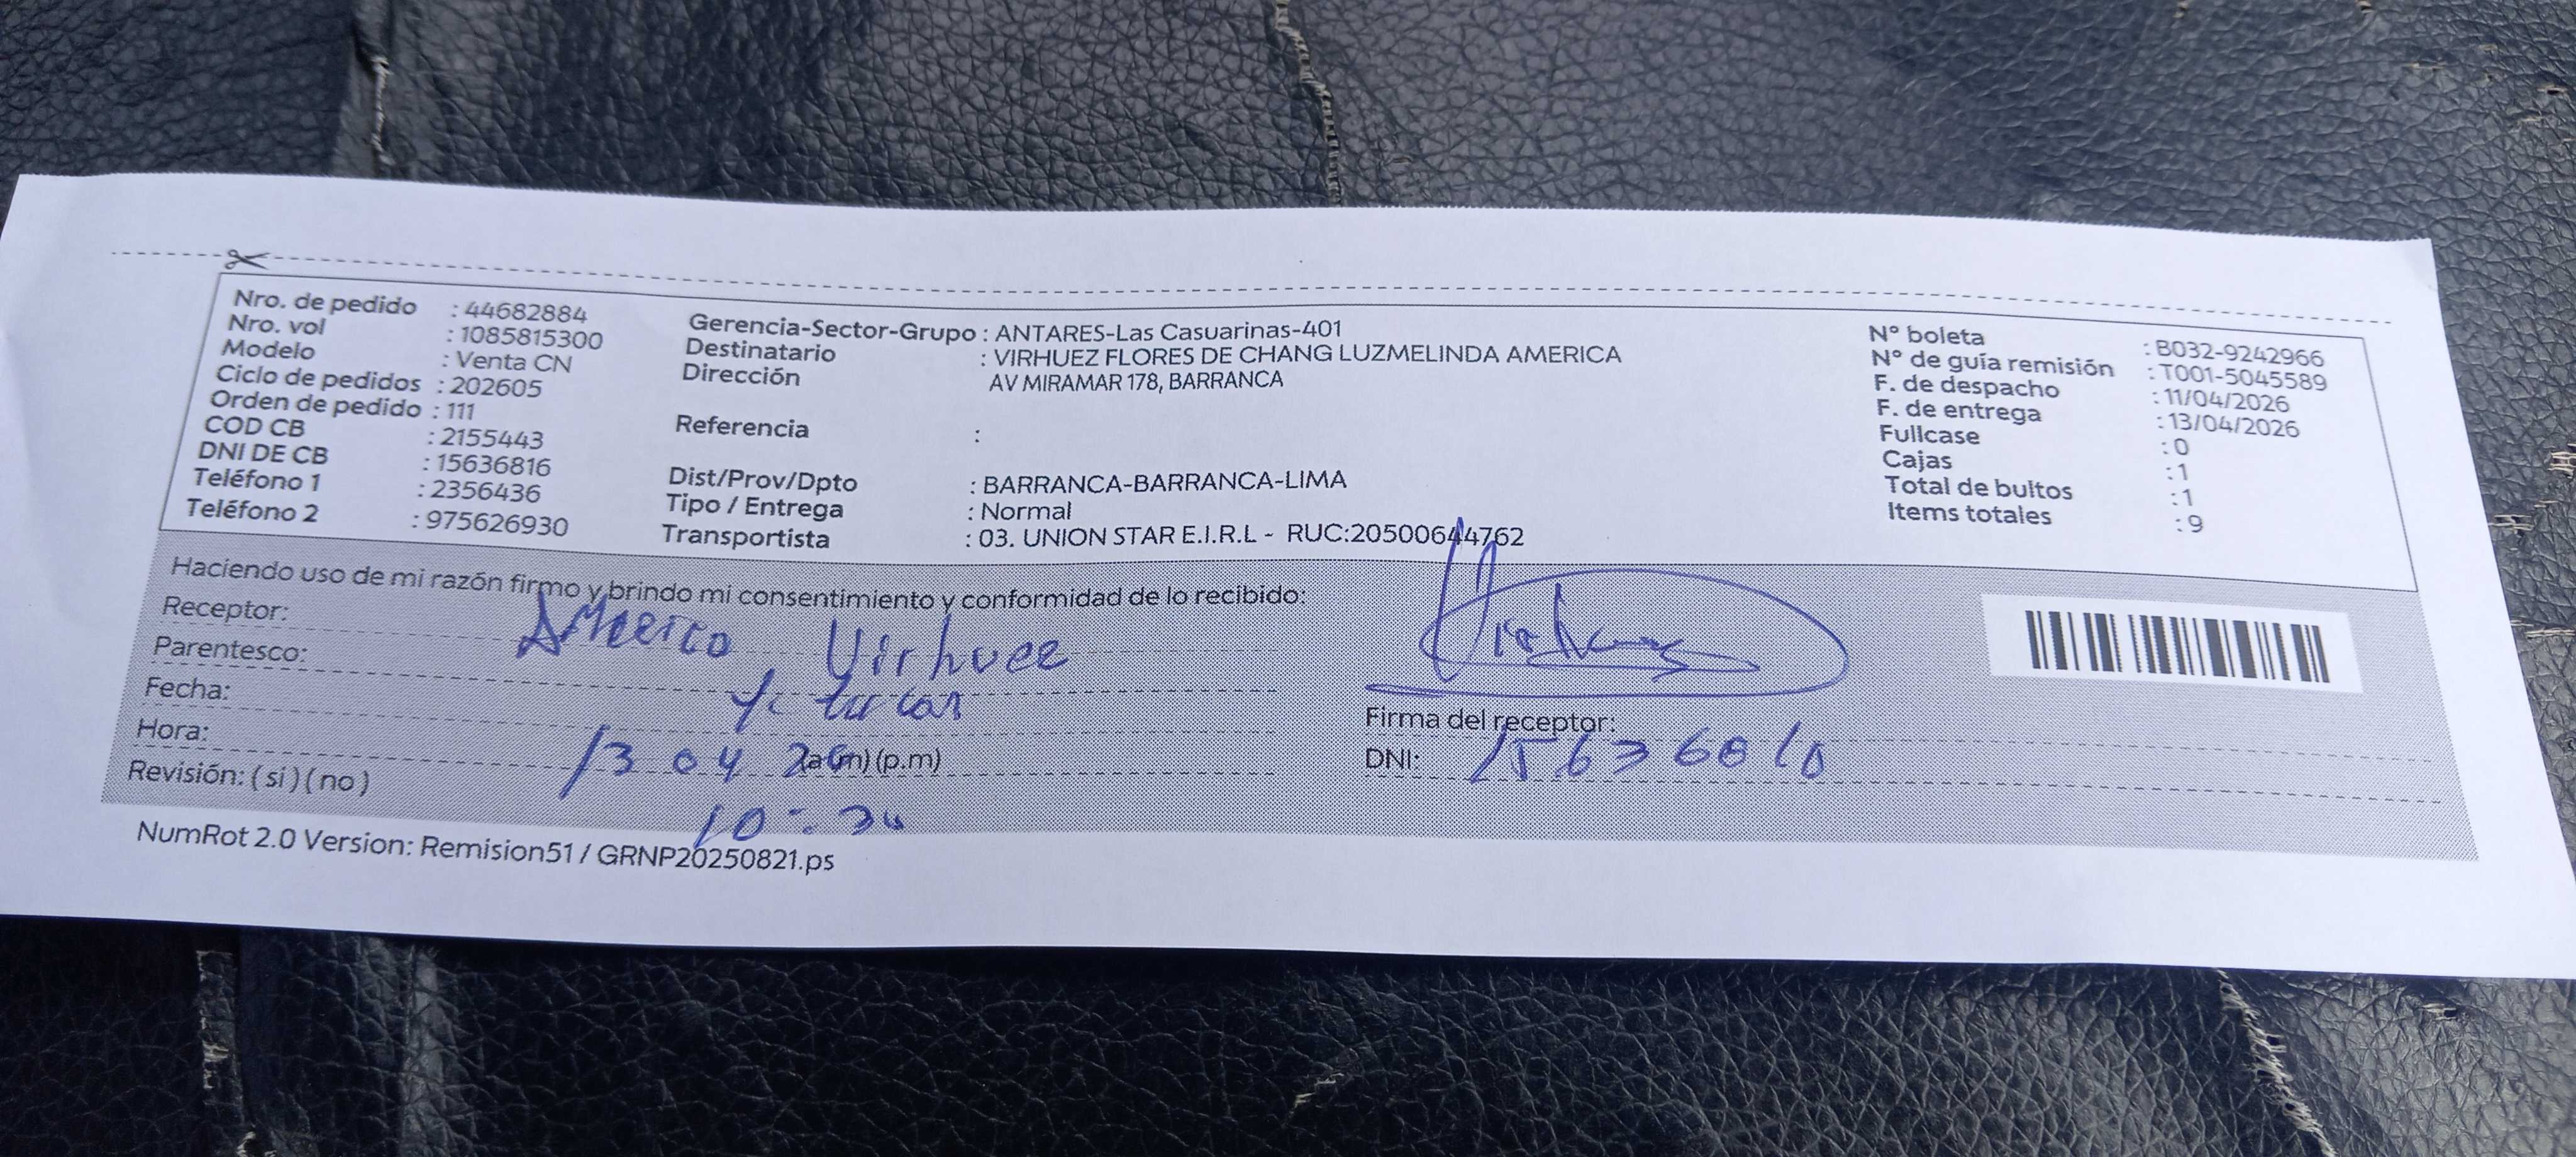 Nro. de pedido : 44682884
Nro. vol : 1085815300
Modelo : Venta CN
Ciclo de pedidos : 202605
Orden de pedido : 111
COD CB : 2155443
DNI DE CB : 15636816
Teléfono 1 : 2356436
Teléfono 2 : 975626930
Gerencia-Sector-Grupo : ANTARES-Las Casuarinas-401
Destinatario : VIRHUEZ FLORES DE CHANG LUZMELINDA AMERICA
Dirección AV MIRAMAR 178, BARRANCA
Referencia :
Dist/Prov/Dpto : BARRANCA-BARRANCA-LIMA
Tipo / Entrega : Normal
Transportista : 03. UNION STAR E.I.R.L - RUC:20500644762
N° boleta : B032-9242966
N° de guía remisión : T001-5045589
F. de despacho : 11/04/2026
F. de entrega : 13/04/2026
Fullcase : 0
Cajas : 1
Total de bultos : 1
Items totales : 9
Haciendo uso de mi razón firmo y brindo mi consentimiento y conformidad de lo recibido:
Receptor: Virhuez
Parentesco:
Fecha: 13 04 26
Hora: (a.m) (p.m)
10:
Revisión: ( si ) ( no )
Firma del receptor:
DNI:
NumRot 2.0 Version: Remision51 / GRNP20250821.ps